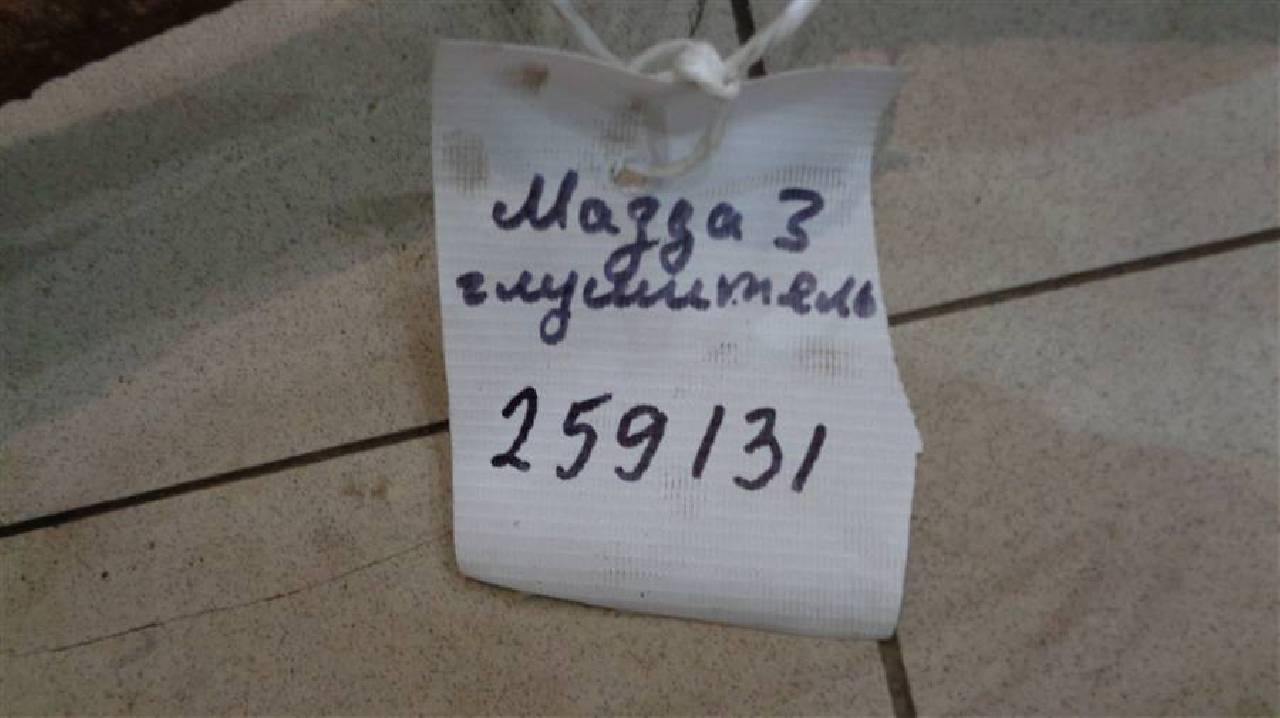 Мазда 3
глушитель
259131